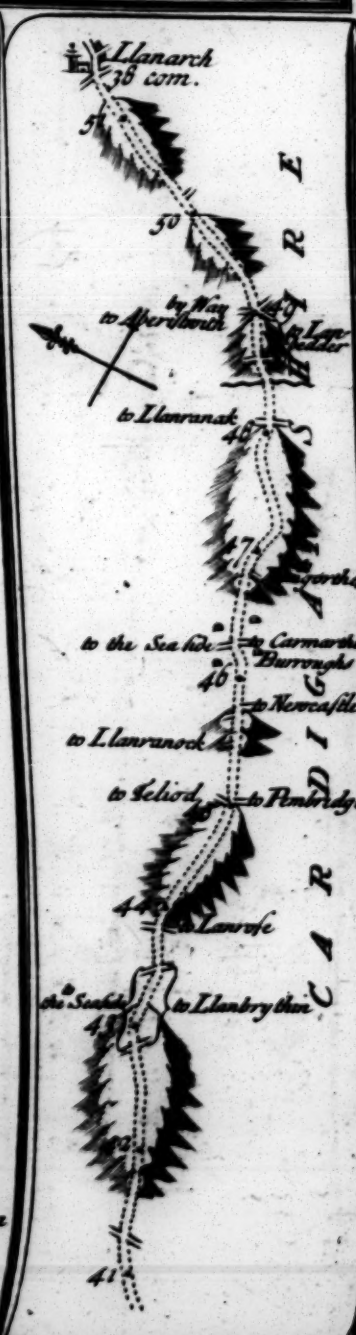 Llanarch
38 com.
51
50
by Way
to Aberistwith
49
to Lan
badder
to Llanranak
48
47
to the Sea side
to Carmarth
Burroughs
46
to Newcastle
to Llanranock
to Teliod
45
to Pembridg
44
to Lanrose
to
the Seaside
43
to Llanbrythen
42
41
CARDIGANSHIRE